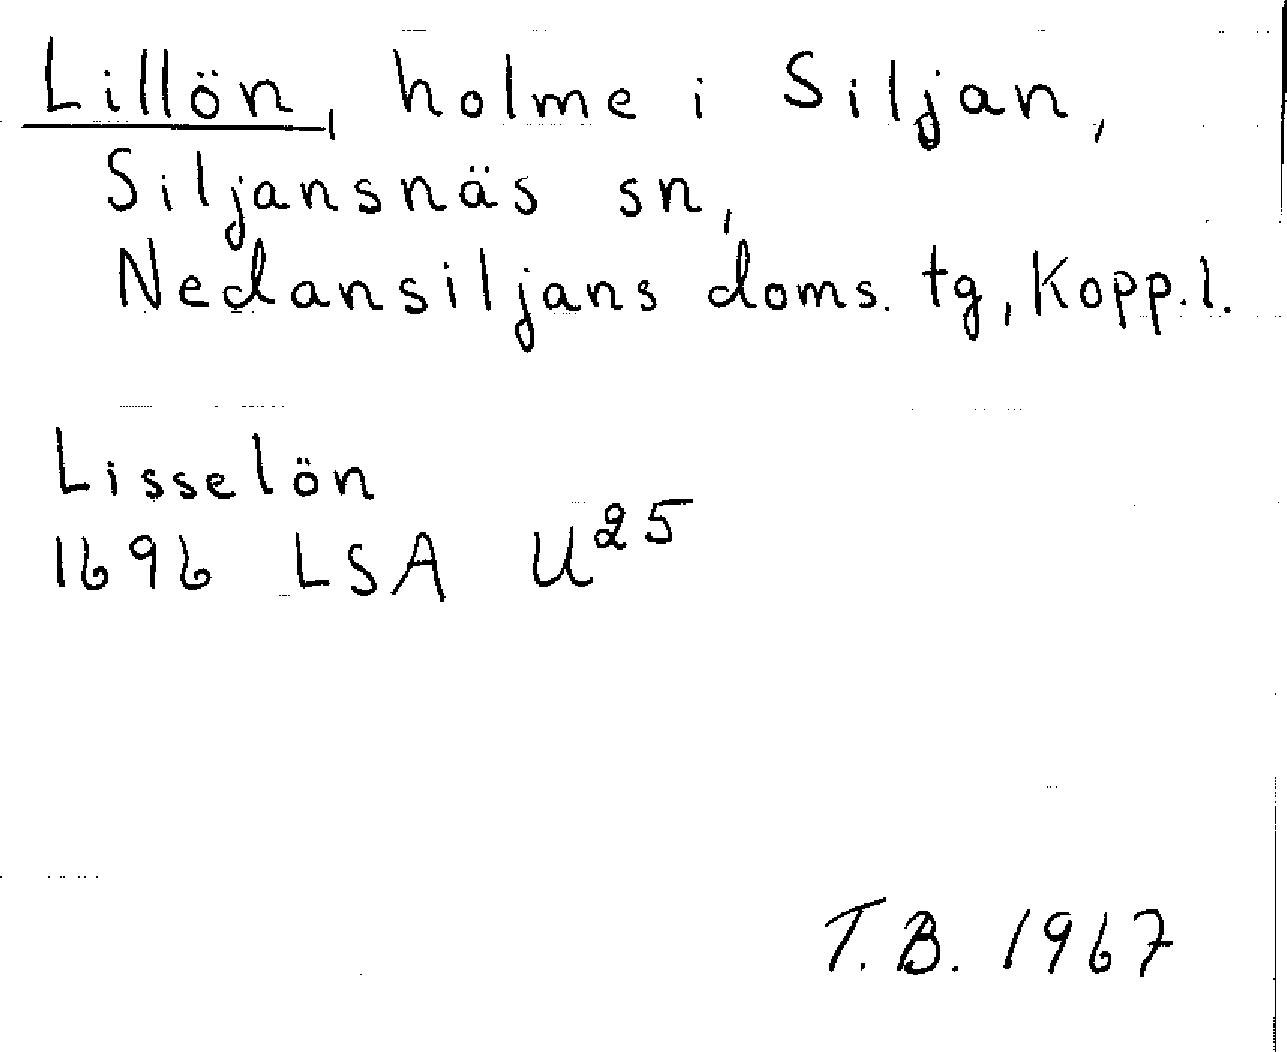 Lillön, holme i Siljan,
Siljansnäs sn,
Nedansiljans doms. tg, Kopp.l.
Lisselön
1696 LSA U²⁵
T.B. 1967